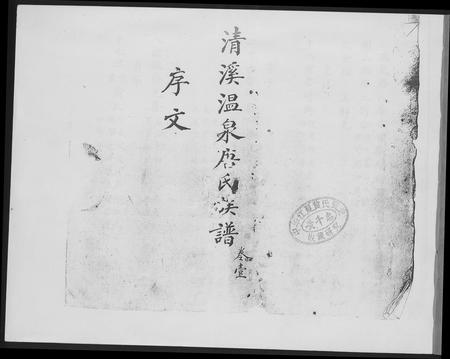 清溪温泉唐氏族譜
卷壹
序文